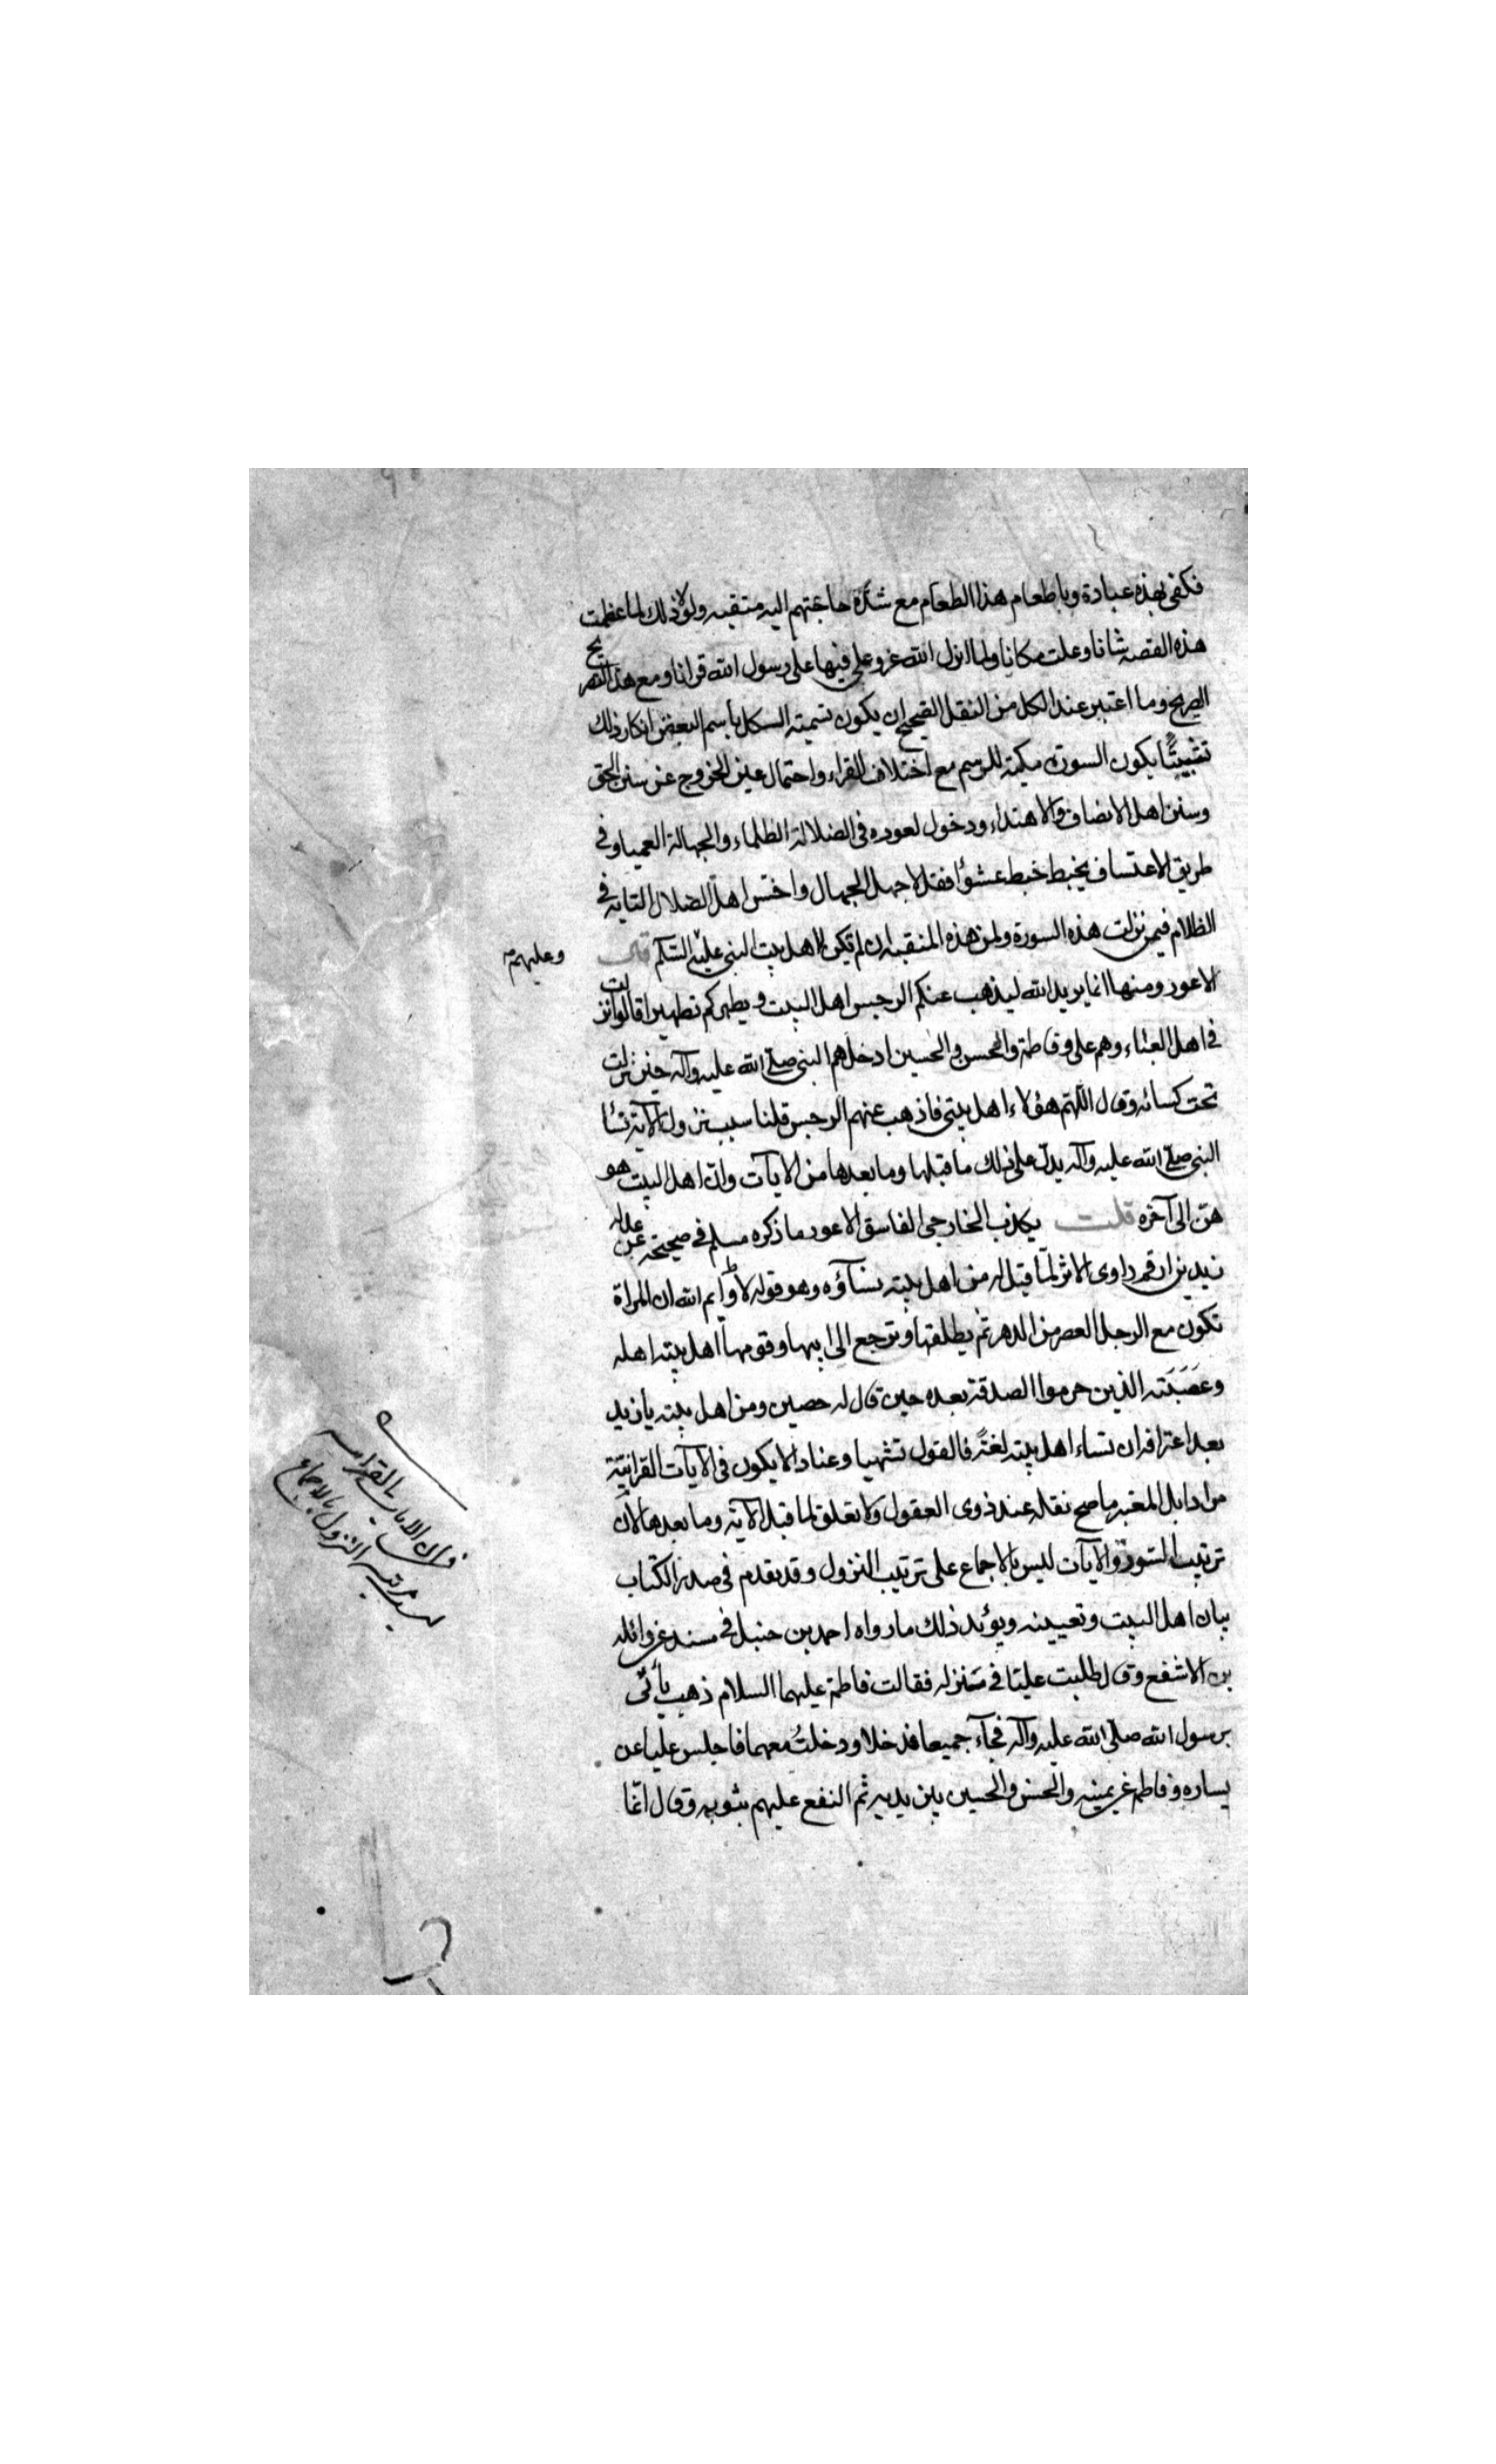 فكفى بهذه عبادة وباطعام هذا الطعام مع شدة حاجتهم اليه منقبه ولولا ذلك لما عظمت
هذه القصه شانا وعلت مكانا ولما انزل الله عز وعلى فيها على رسول الله قرانا ومع هذا التصريح
الصريح وما اعتبر عند الكل من النقل الصحيح ان يكون تسمية السكل باسم البعض انكار ذلك
تشبيثا بكون السورة مكية للرسم مع اختلاف القراء واحتمال عين الخروج عن سنن الحق
وسنن اهل الانصاف والاهتداء ودخول لعوده في الضلالة الظلماء والجهالة العميا وفي
طريق الاعتساف يخبط خبط عشوا فقل لاجهل الجهال واخس اهل الضلال التايه في
الظلام فيمن نزلت هذه السورة ولمن هذه المنقبه ان لم تكن لاهل بيت النبي عليه السلم قال
وعليهم
الاعور ومنها انما يريد الله ليذهب عنكم الرجس اهل البيت ويطهركم تطهيرا قالوا نزلت
في اهل العباء وهم على وفاطمة والحسن والحسين ادخلهم النبي صلى الله عليه وآله حين نزلت
تحت كسائه وقال اللهم هؤلاء اهل بيتي فاذهب عنهم الرجس قلنا سبب نزول الآية نسا
النبي صلى الله عليه وآله يدل على ذلك ما قبلها وما بعدها من الايات وان اهل البيت هو
هن الى آخره قلت يكذب الخارجي الفاسق الاعور ما ذكره مسلم في صحيحه عن
زيد بن ارقم راوى الاثر لما قيل له من اهل بيته نسآؤه وهو قوله لا وايم الله ان المراة
تكون مع الرجل العصر من الدهر ثم يطلقها وترجع الى ابيها وقومها اهل بيته اهله
وعصبته الذين حرموا الصدقة بعده حين قال له حصين ومن اهل بيته يا زيد
بعد اعترافه ان نساء اهل بيته لغة فالقول تشهيا وعنادا لا يكون في الآيات القرانية
من ادابل المعتبر ما صح نقله عند ذوى العقول ولا تعلق لما قبل الآية وما بعدها لان
ترتيب السور والآيات ليس بالاجماع على ترتيب النزول وقد تقدم في صدر الكتاب
بيان اهل البيت وتعيينه ويؤيد ذلك ما رواه احمد بن حنبل في مسنده عن واثله
بن الاشفع وقال طلبت عليا في منزله فقالت فاطمة عليهما السلام ذهب يأتي
برسول الله صلى الله عليه وآله فجآء جميعا فدخلا ودخلت معهما فاجلس عليا عن
يساره وفاطمه عن يمينه والحسن والحسين بين يديه ثم النفع عليهم بثوبه وقال انما
فان الايات القرانيه
ليس ترتيب النزول بالاجماع